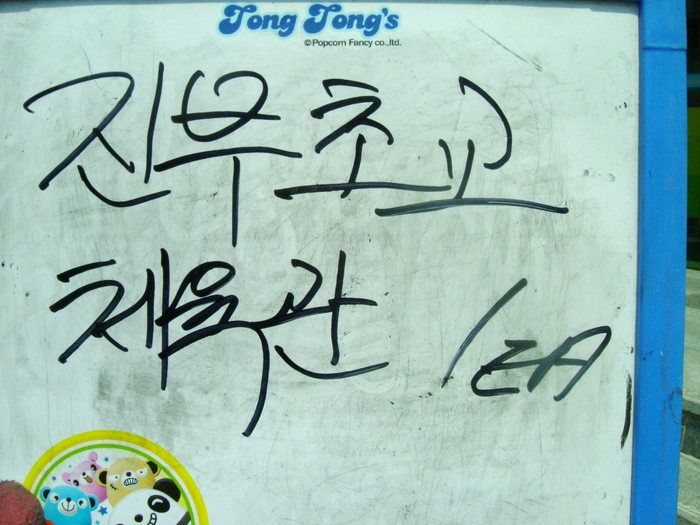 Tong Tong's
©Popcorn Fancy co.,ltd.
진부초교
체육관 1EA